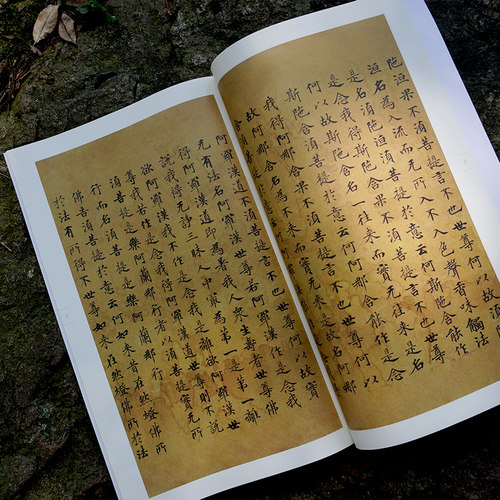 陁洹果不須菩提言不也世尊何以故須
洹名為入流而无所入不入色聲香味觸法
是名須陁洹須菩提於意云何斯陁含能作
是念我得斯陁含果不須菩提言不也世尊
何以故斯陁含名一往來而實无往來是名
斯陁含須菩提於意云何阿那含能作是念
我得阿那含果不須菩提言不也世尊何以
故阿那含名為不來而實无來是故名阿那
含須菩提於意云何
阿羅漢道不須菩提言不也世尊何以故實
无有法名阿羅漢世尊若阿羅漢作是念我
得阿羅漢道即為著我人衆生壽者世尊佛
說我得无諍三昧人中最為第一是第一離
欲阿羅漢我不作是念我是離欲阿羅漢世
尊我若作是念我得阿羅漢道世尊則不說
須菩提是樂阿蘭那行者以須菩提實无所
行而名須菩提是樂阿蘭那行
佛告須菩提於意云何如來昔在然燈佛所
於法有所得不世尊如來在然燈佛所於法